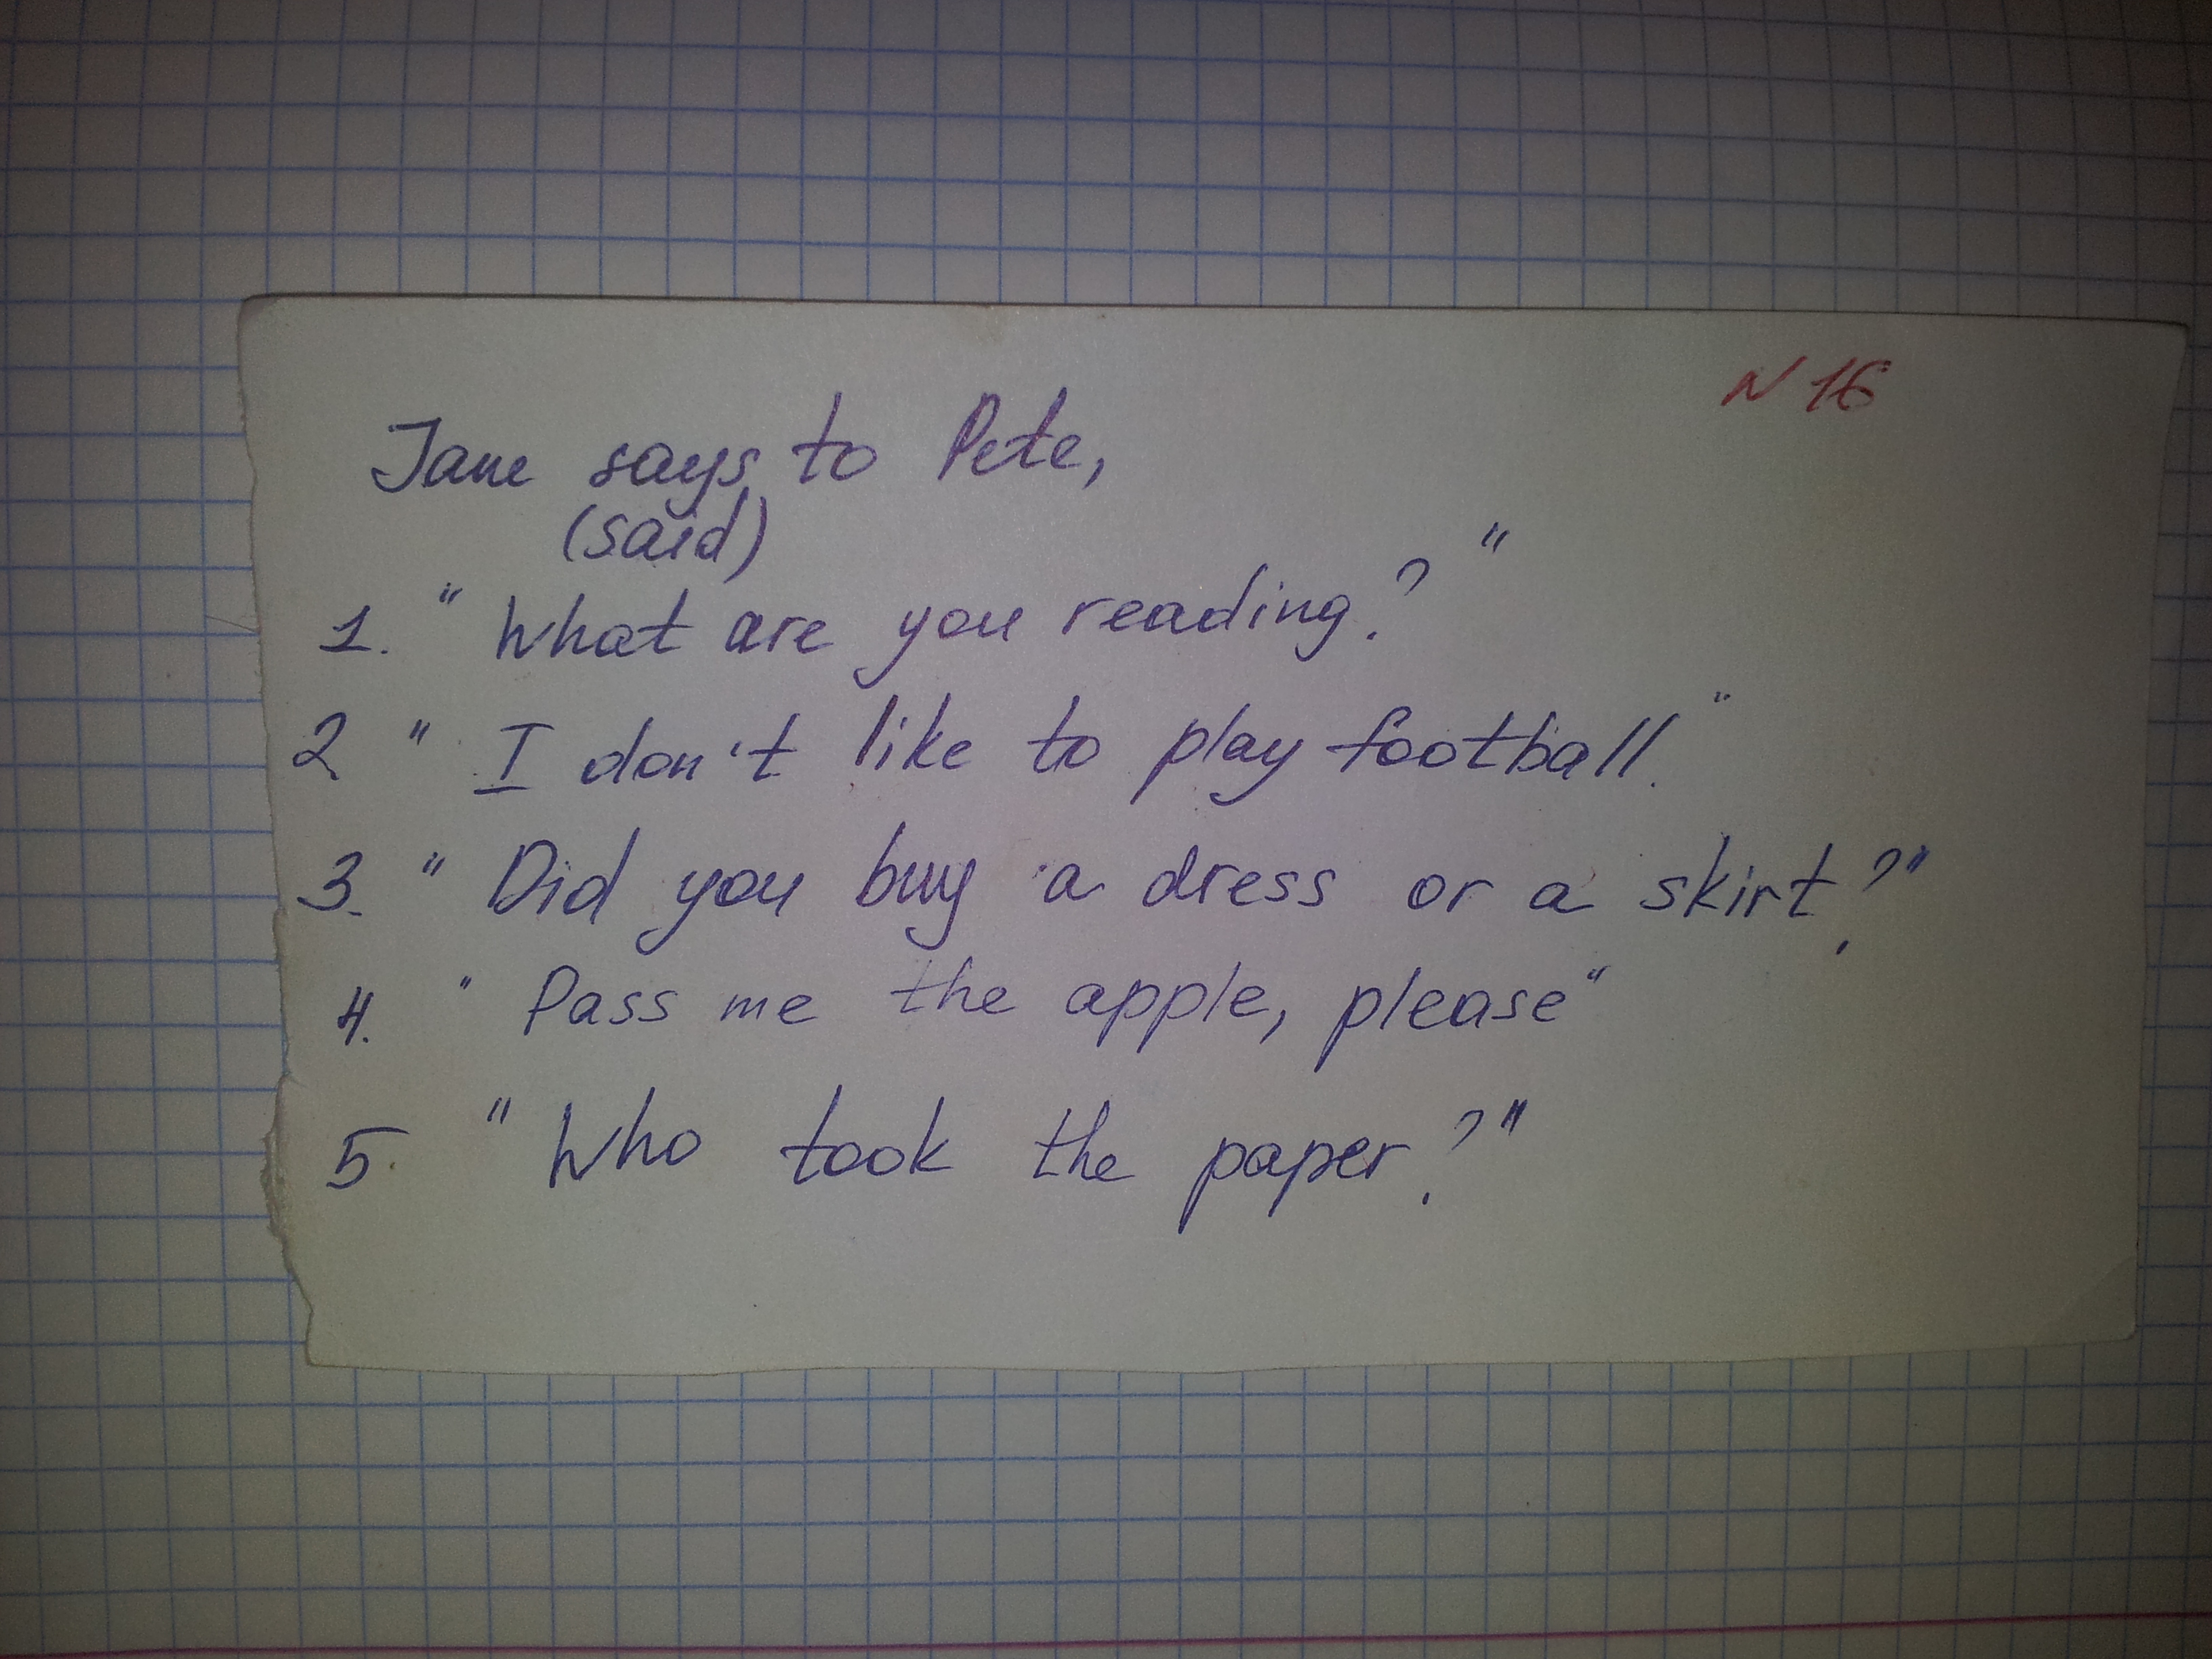 N 16
Jane says to Pete,
(said)
1. "What are you reading?"
2 "I don't like to play football."
3. "Did you buy a dress or a skirt?"
4. "Pass me the apple, please"
5. "Who took the paper?"